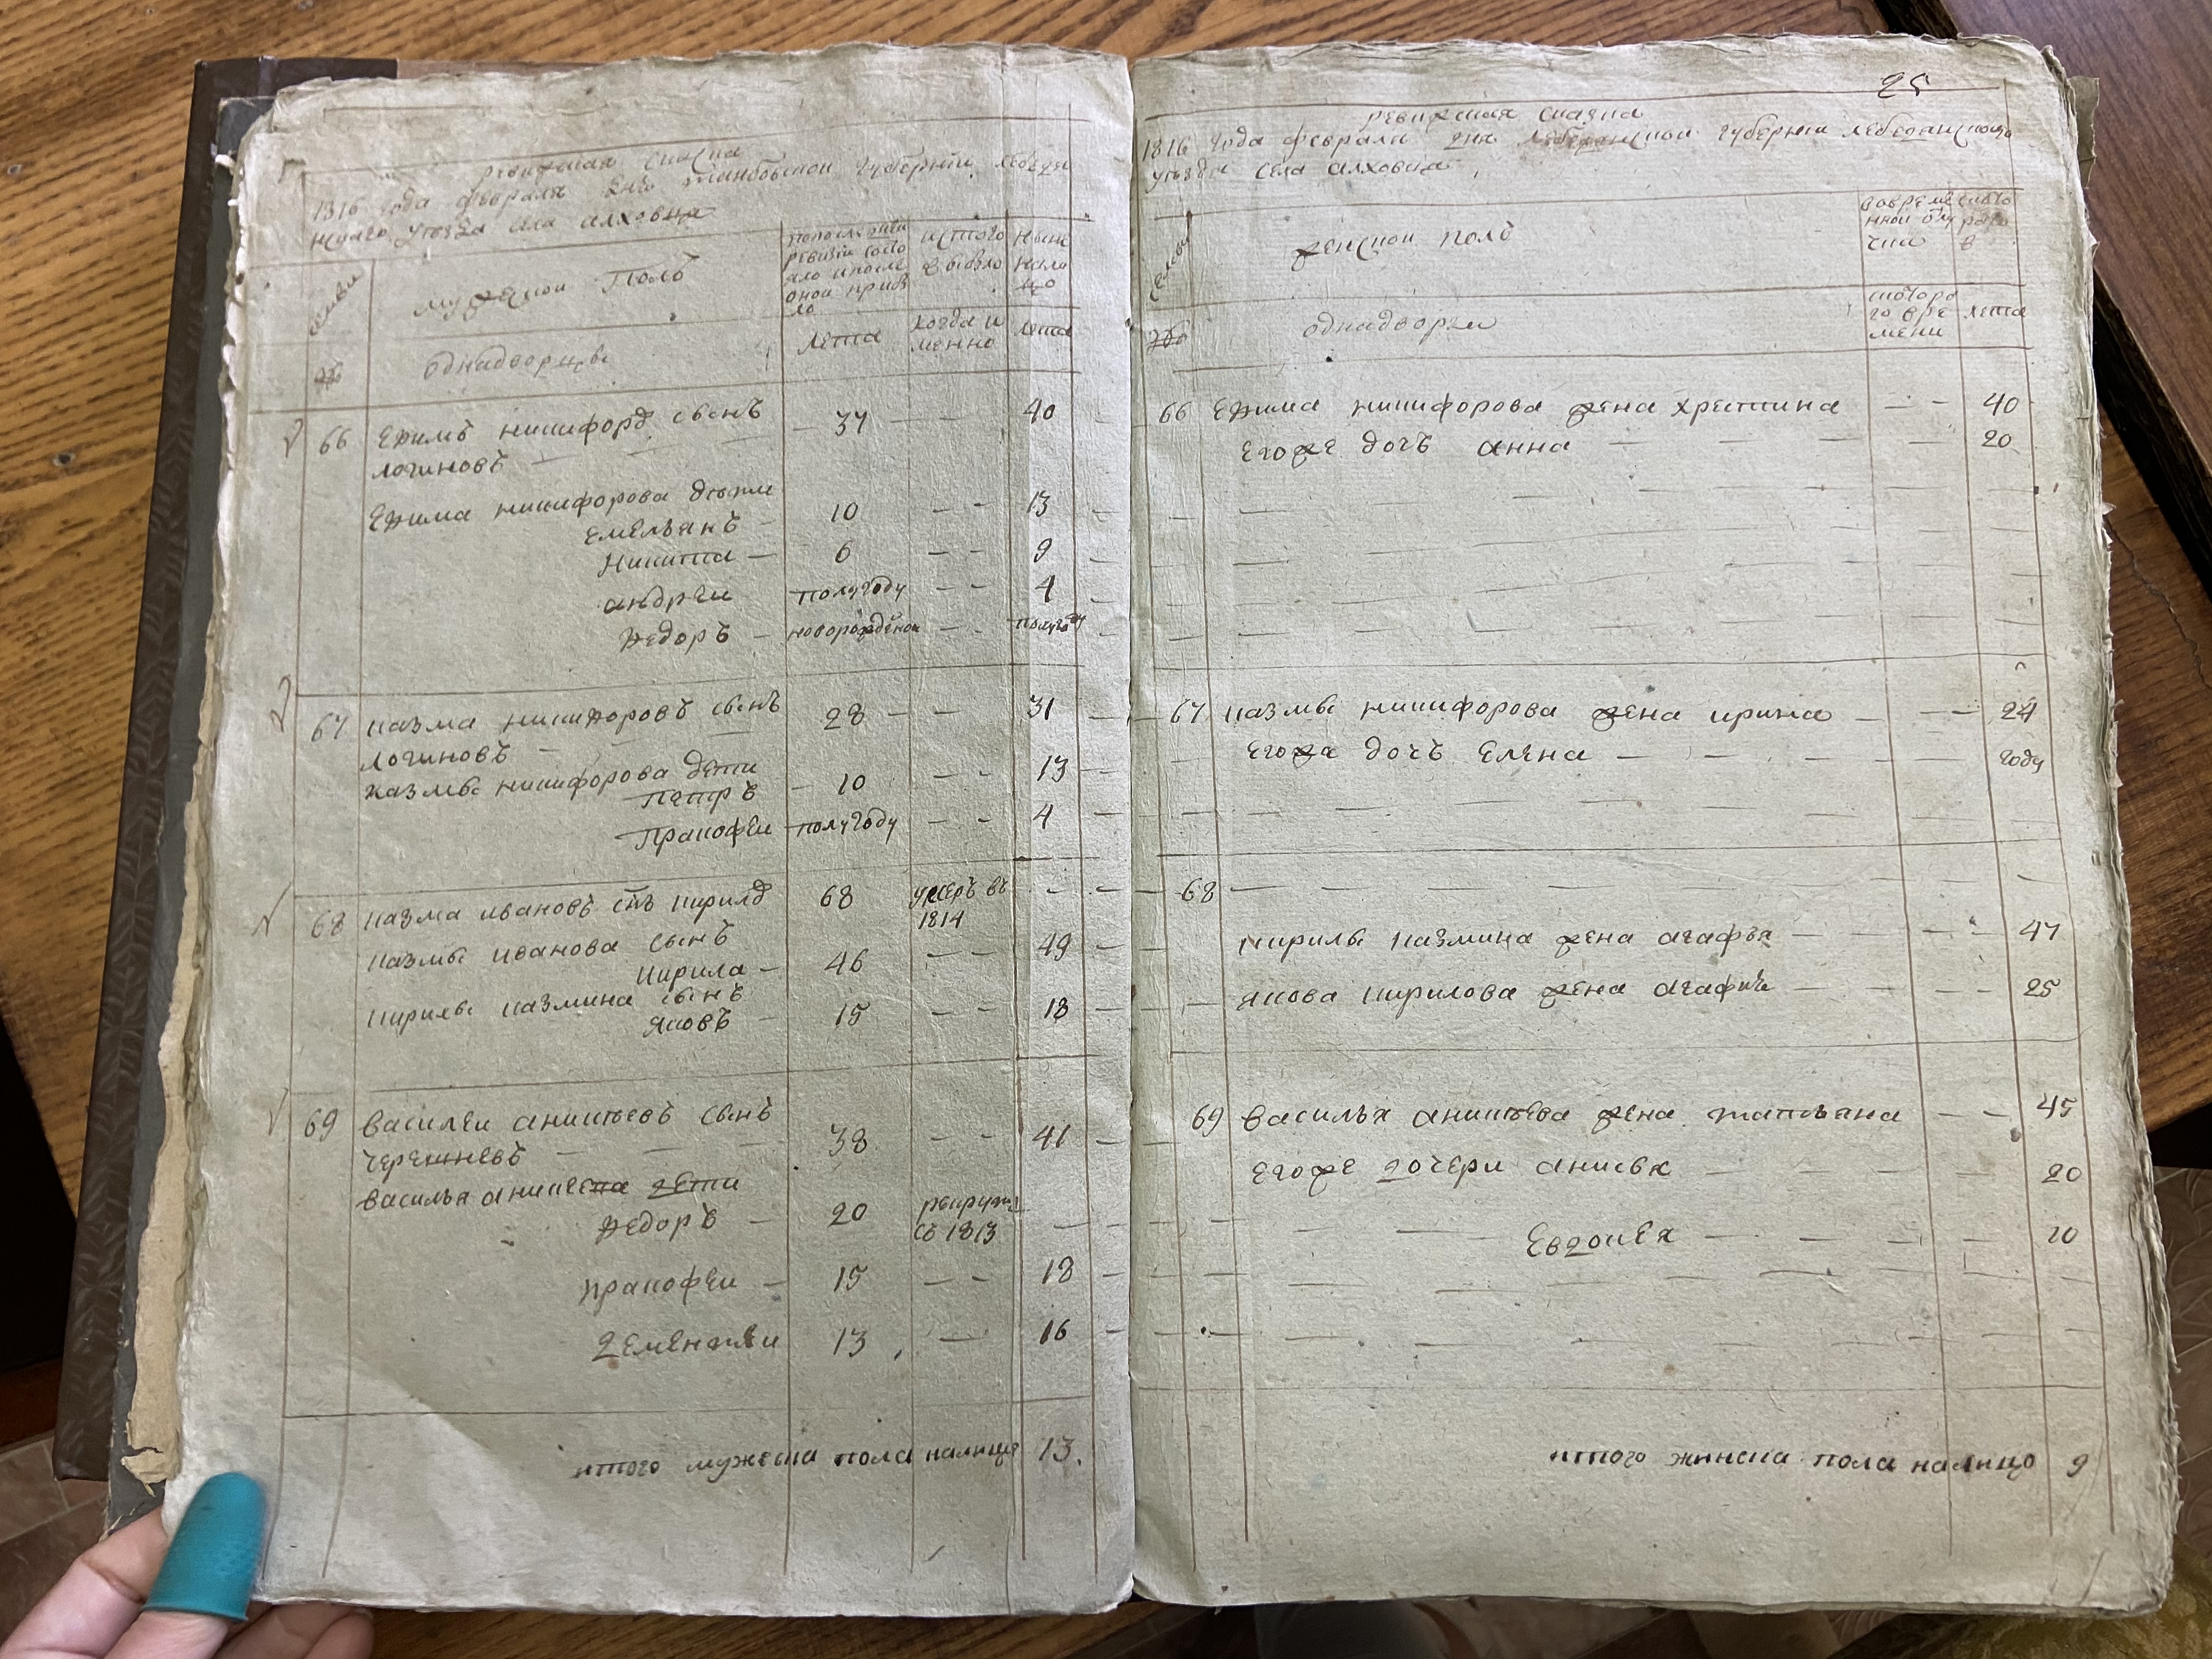 ревижская скаска
1816 года февраля дня танбовской губернии лебедя
нскаго уезда села алховца
семьи
мужеской полъ
попоследней
ревизии состо
яло ипосле
оной прибы
ло
истого
числа выбыло
ныне
нали
цо
№
однадворцы
лета
когда и
менно
лета
66 Ефимъ никифоровъ сынъ 37 — 40
логиновъ — — —
Ефима никифорова дѣти
Емельянъ — 10 — — 13
Никита — 6 — — 9
андреи полугоду — — 4
Федоръ — новорожденои — полугоду
67 казма никифоровъ сынъ 28 — — 31
логиновъ — — —
казмы никифорова дети
Петръ — 10 — — 13
Пракофеи полугоду — — 4
68 казма ивановъ снъ кирилъ 68 умеръ въ — —
1814
казмы иванова сынъ
кирила — 46 — — 49
кирилы казмина сынъ
яковъ — 15 — — 18
69 василеи аникеевъ сынъ
черешневъ — — 38 — — 41
василья аникеева дети
Федоръ — 20 рекруты
съ 1813
пракофеи — 15 — — 18
дементеи 13 — 16
итого мужеска пола налицо 13.
25
ревижская скаска
1816 года февраля дня губернии лебедянскаго
уезда села алховца
семьи
женской полъ
вовреме
нной отлу
чки
налицо
№
однадворки
скоторо
го вре
мени
лета
66 Ефима никифорова жена христина — — 40
Егоже дочь анна — — — — 20
67 казмы никифорова жена ирина — — — 24
Егожа дочь Елена — — — — году
68 — — — — —
кирилы казмина жена агафья — — — 47
якова кирилова жена агафья — — — 25
69 василья аникеева жена татьяна — — 45
Егоже дочери анисья — — — — 20
Евдокея — — — — 10
итого жинска пола налицо 9